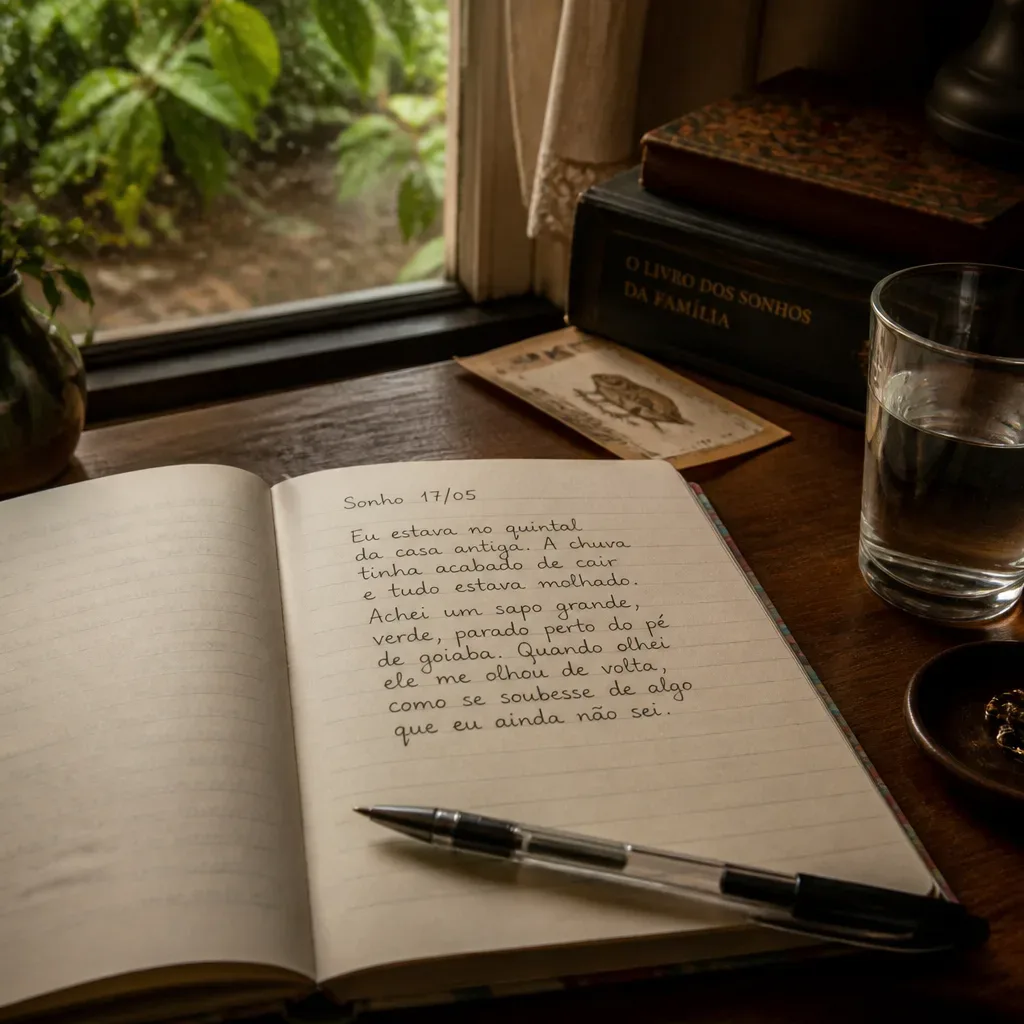 O LIVRO DOS SONHOS
DA FAMÍLIA
Sonho 17/05
Eu estava no quintal
da casa antiga. A chuva
tinha acabado de cair
e tudo estava molhado.
Achei um sapo grande,
verde, parado perto do pé
de goiaba. Quando olhei
ele me olhou de volta,
como se soubesse de algo
que eu ainda não sei.